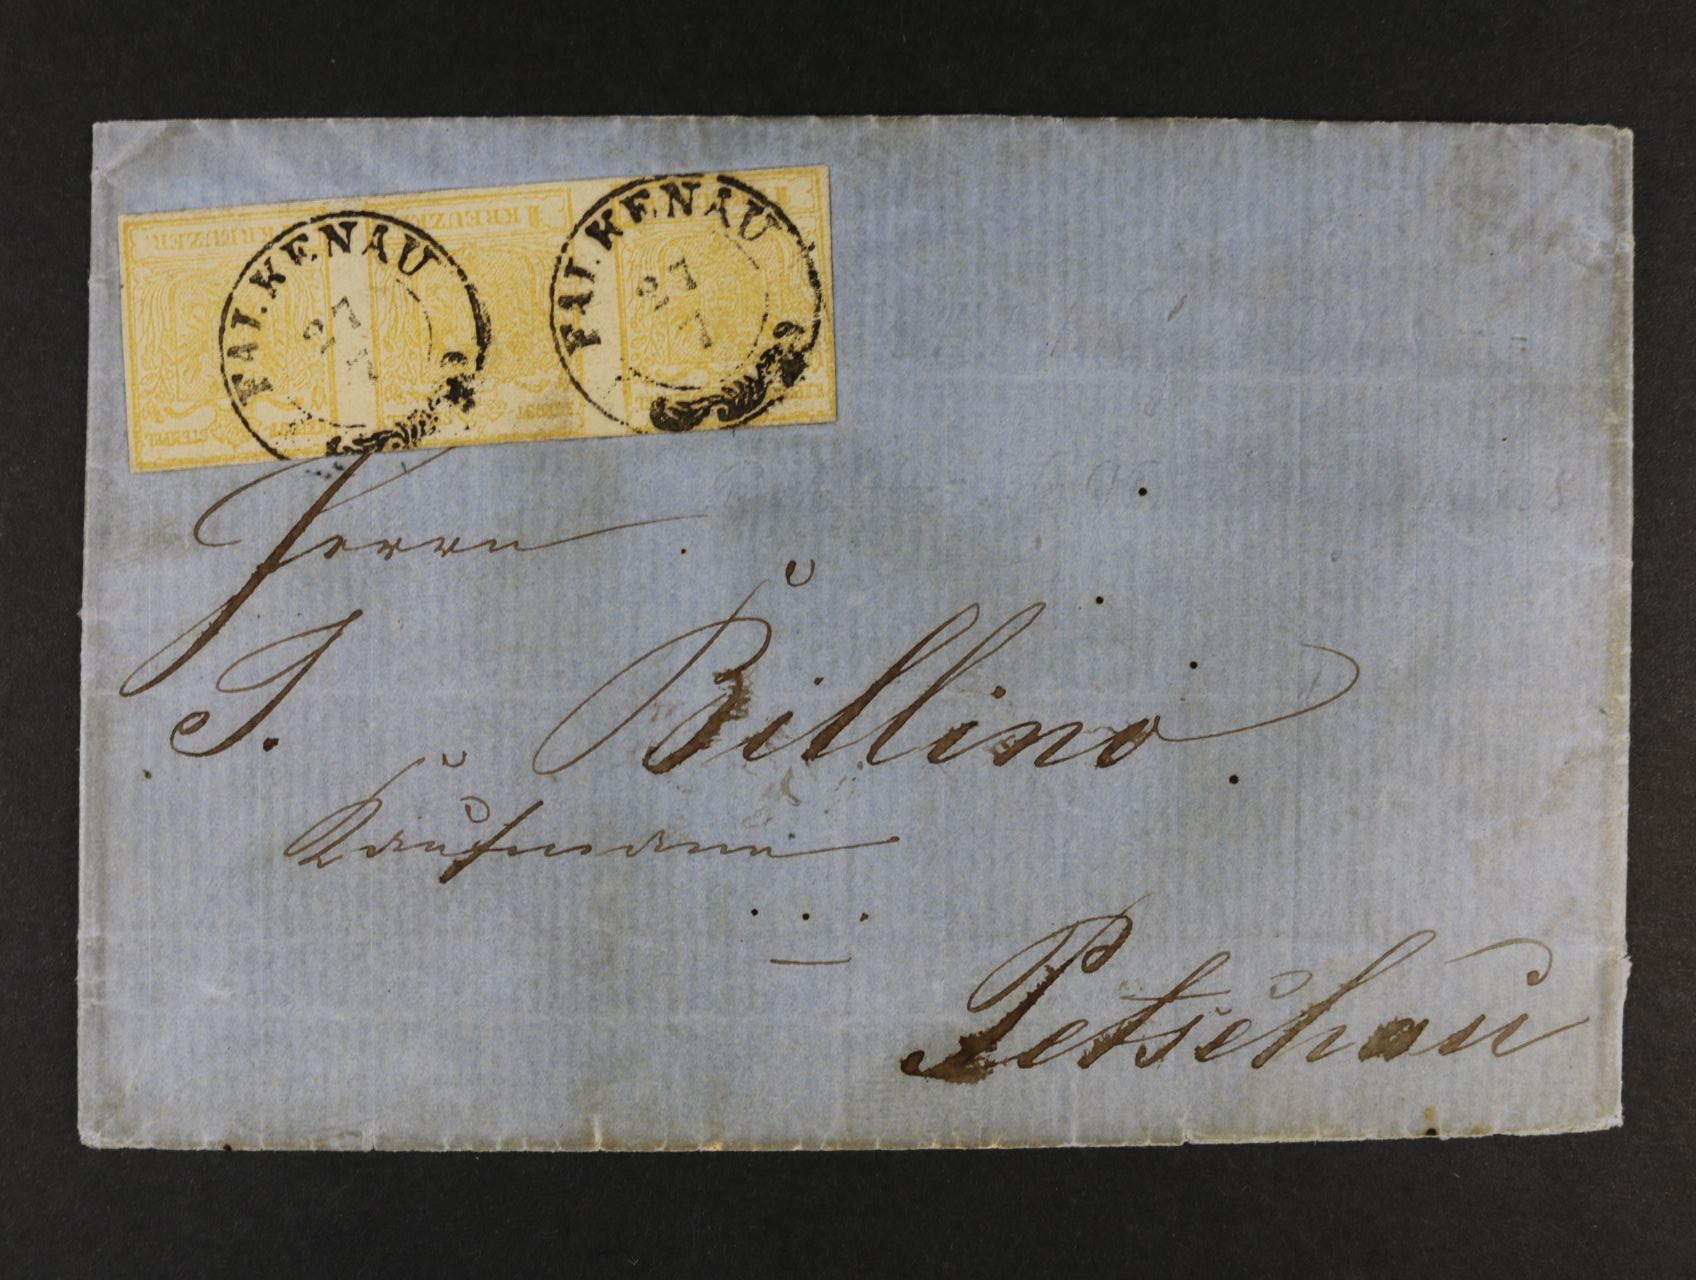 KREUZER.
KREUZER
1 KREUZER
1
STEMPEL
FALKENAU
27
7
FALKENAU
27
7
Herrn
J. Billino
Kaufmann
Petschau